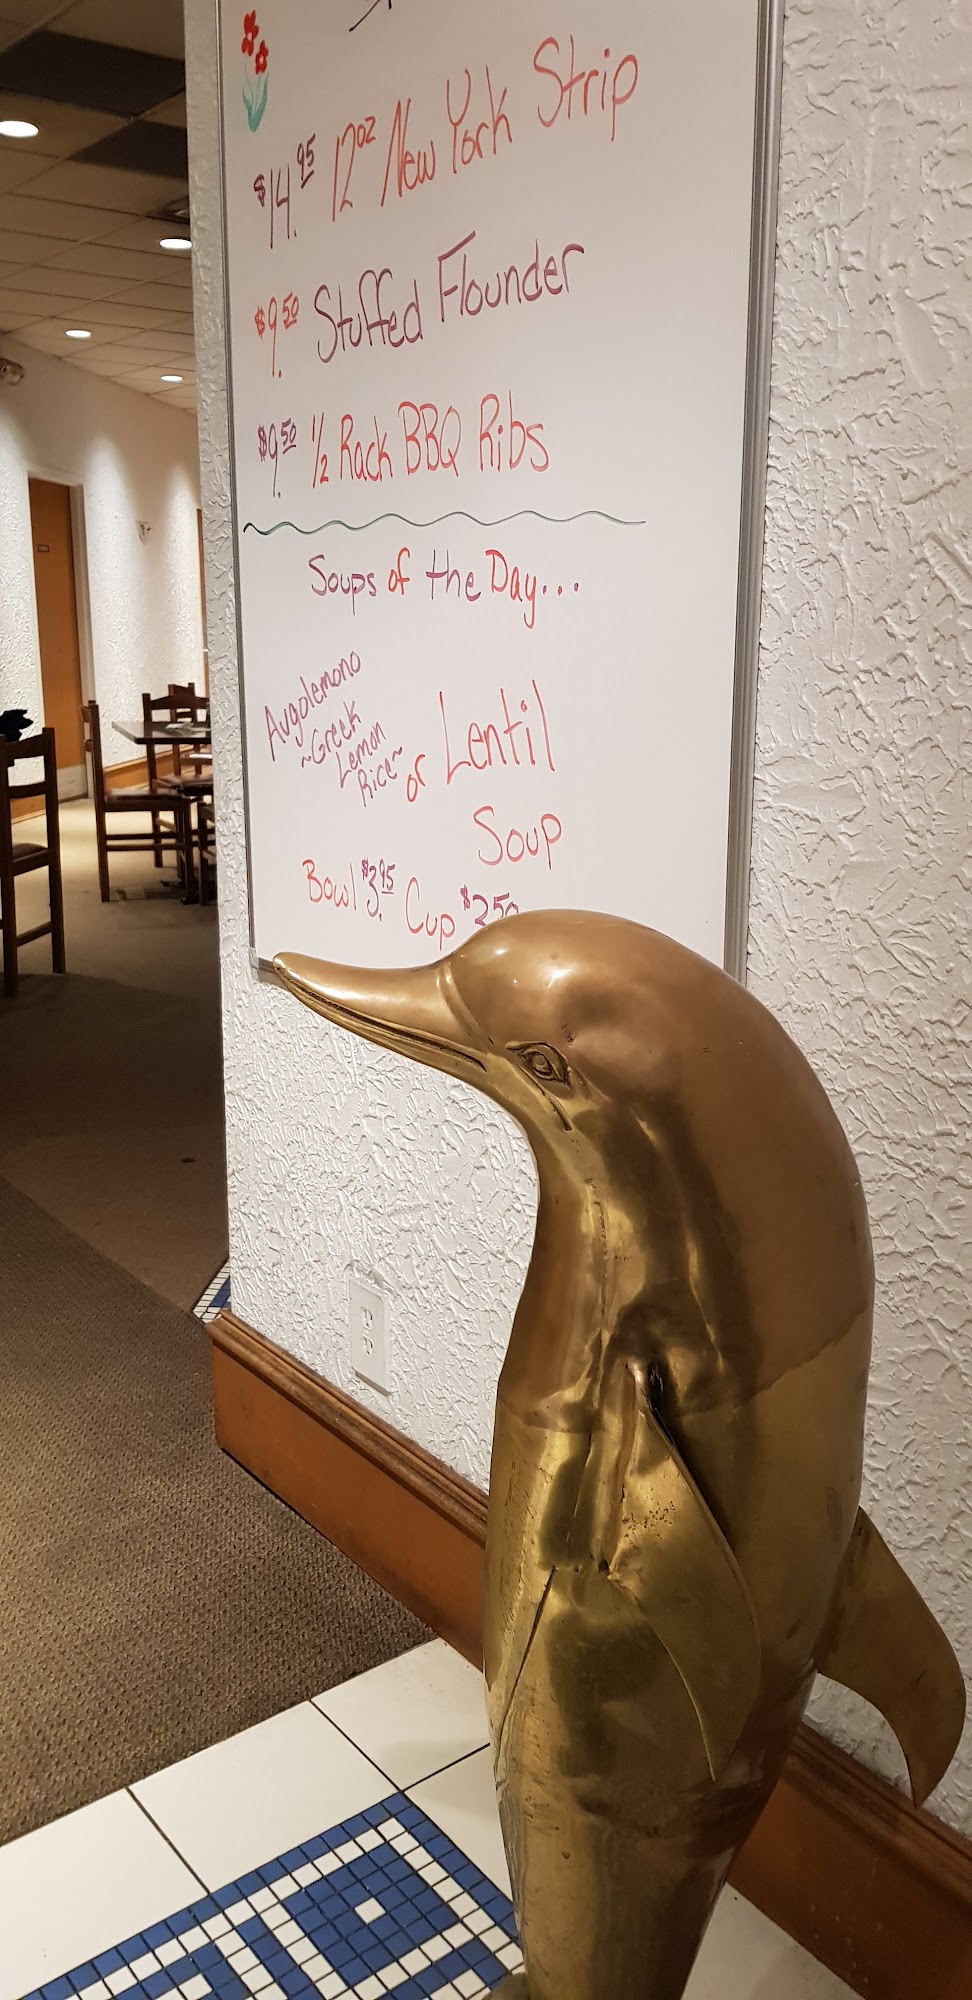 $14.95 12oz New York Strip
$9.50 Stuffed Flounder
$9.50 1/2 Rack BBQ Ribs
Soups of the Day...
Avgolemono
~Greek
Lemon
Rice~
or Lentil
Soup
Bowl $3.95 Cup $2.50